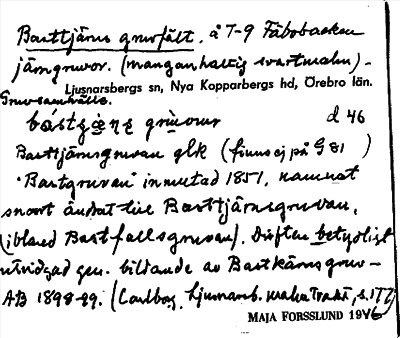 Basttjärns gruvfält, å T-9 Fäbobacken
järngruvor. (manganhaltig svartmalm) -
Ljusnarsbergs sn, Nya Kopparbergs hd, Örebro län.
Gruvsamhälle.
d 46
Basttjärnsgruvan glk (finns ej på G 81 )
"Bastgruvan" inmutad 1851, namnet
snart ändrat till Basttjärnsgruvan,
(ibland Bastfallsgruvan). Driften betydligt
utvidgad gen. bildande av Bastkärnsgruv-
AB 1898-99. (Carlborg, Ljusnarsb. malmtrakt, s. 177)
MAJA FORSSLUND 1946